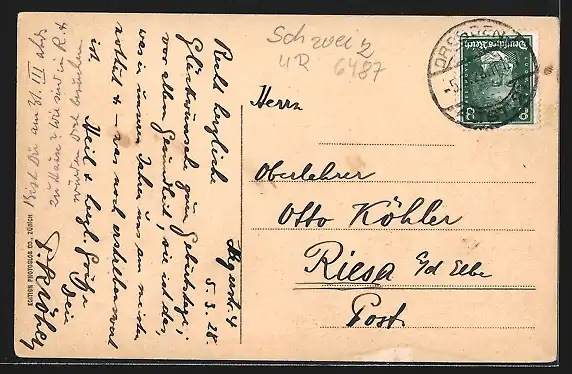 Schweiz
UR 6487
DRESDEN
Deutsches Reich
8 8
Herrn
Oberlehrer
Otto Köhler
Riesa a/d Elbe
Post
5.3.28.
Recht herzliche
Glückwünsche zum Geburtstage;
vor allem Gesundheit, die ist ja,
was in unsern Jahren uns am meisten
ist.
Heil & herzl. Grüße
Dein
Bist Du am 31. III
zu Haus? Wir sind in R. &
würden Dich besuchen
EDITION PHOTOGLOB CO., ZÜRICH